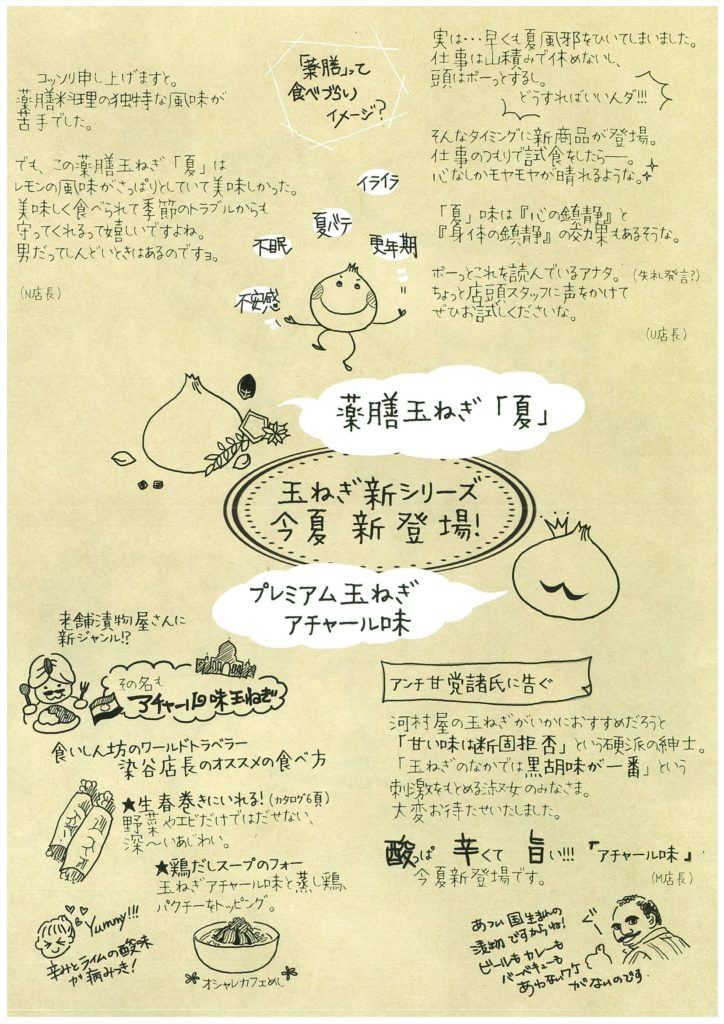 コッソリ申し上げますと。
薬膳料理の独特な風味が
苦手でした。
でも、この薬膳玉ねぎ「夏」は
レモンの風味がさっぱりとしていて美味しかった。
美味しく食べられて季節のトラブルからも
守ってくれるって嬉しいですよね。
男だってしんどいときはあるのですョ。
(N店長)
「薬膳」って
食べづらい
イメージ?
イライラ
夏バテ
不眠
更年期
不安感
実は・・・早くも夏風邪をひいてしまいました。
仕事は山積みで休めないし、
頭はボーっとするし。
どうすればいいんダ!!!
そんなタイミングに新商品が登場。
仕事のつもりで試食をしたら―。
心なしかモヤモヤが晴れるような。
「夏」味は『心の鎮静』と
『身体の鎮静』の効果もあるそうな。
ボーっとこれを読んでいるアナタ。(失礼発言?)
ちょっと店頭スタッフに声をかけて
ぜひお試しくださいな。
(U店長)
薬膳玉ねぎ「夏」
玉ねぎ新シリーズ
今夏 新登場!
プレミアム玉ねぎ
アチャール味
老舗漬物屋さんに
新ジャンル!?
その名も
アチャール味玉ねぎ
食いしん坊のワールドトラベラー
染谷店長のオススメの食べ方
★生春巻きにいれる!(カタログ6頁)
野菜やエビだけではだせない、
深〜いあじわい。
★鶏だしスープのフォー
玉ねぎアチャール味と蒸し鶏、
パクチーをトッピング。
Yummy!!!
辛みとライムの酸味
が病みつき!
オシャレカフェめし
アンチ甘党諸氏に告ぐ
河村屋の玉ねぎがいかにおすすめだろうと
「甘い味は断固拒否」という硬派の紳士。
「玉ねぎのなかでは黒胡味が一番」という
刺激をもとめる淑女のみなさま。
大変お待たせいたしました。
酸っぱ 辛くて 旨い!!!『アチャール味』
今夏新登場です。
(M店長)
あつい国生まれの
漬物ですからね!
ビールもカレーも
バーベキューも
あわないワケ
がないのです。